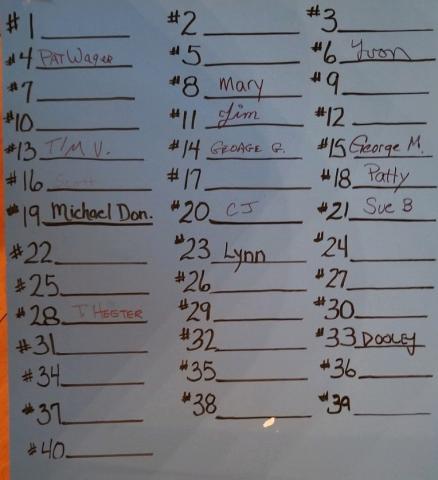 #1 #2 #3
#4 PAT Wager #5 #6 Yvon
#7 #8 Mary #9
#10 #11 Jim #12
#13 TIM V. #14 GEORGE G. #15 George M.
#16 Scott #17 #18 Patty
#19 Michael Don. #20 CJ #21 Sue B
#22 #23 Lynn #24
#25 #26 #27
#28 T HESTER #29 #30
#31 #32 #33 DOOLEY
#34 #35 #36
#37 #38 #39
#40